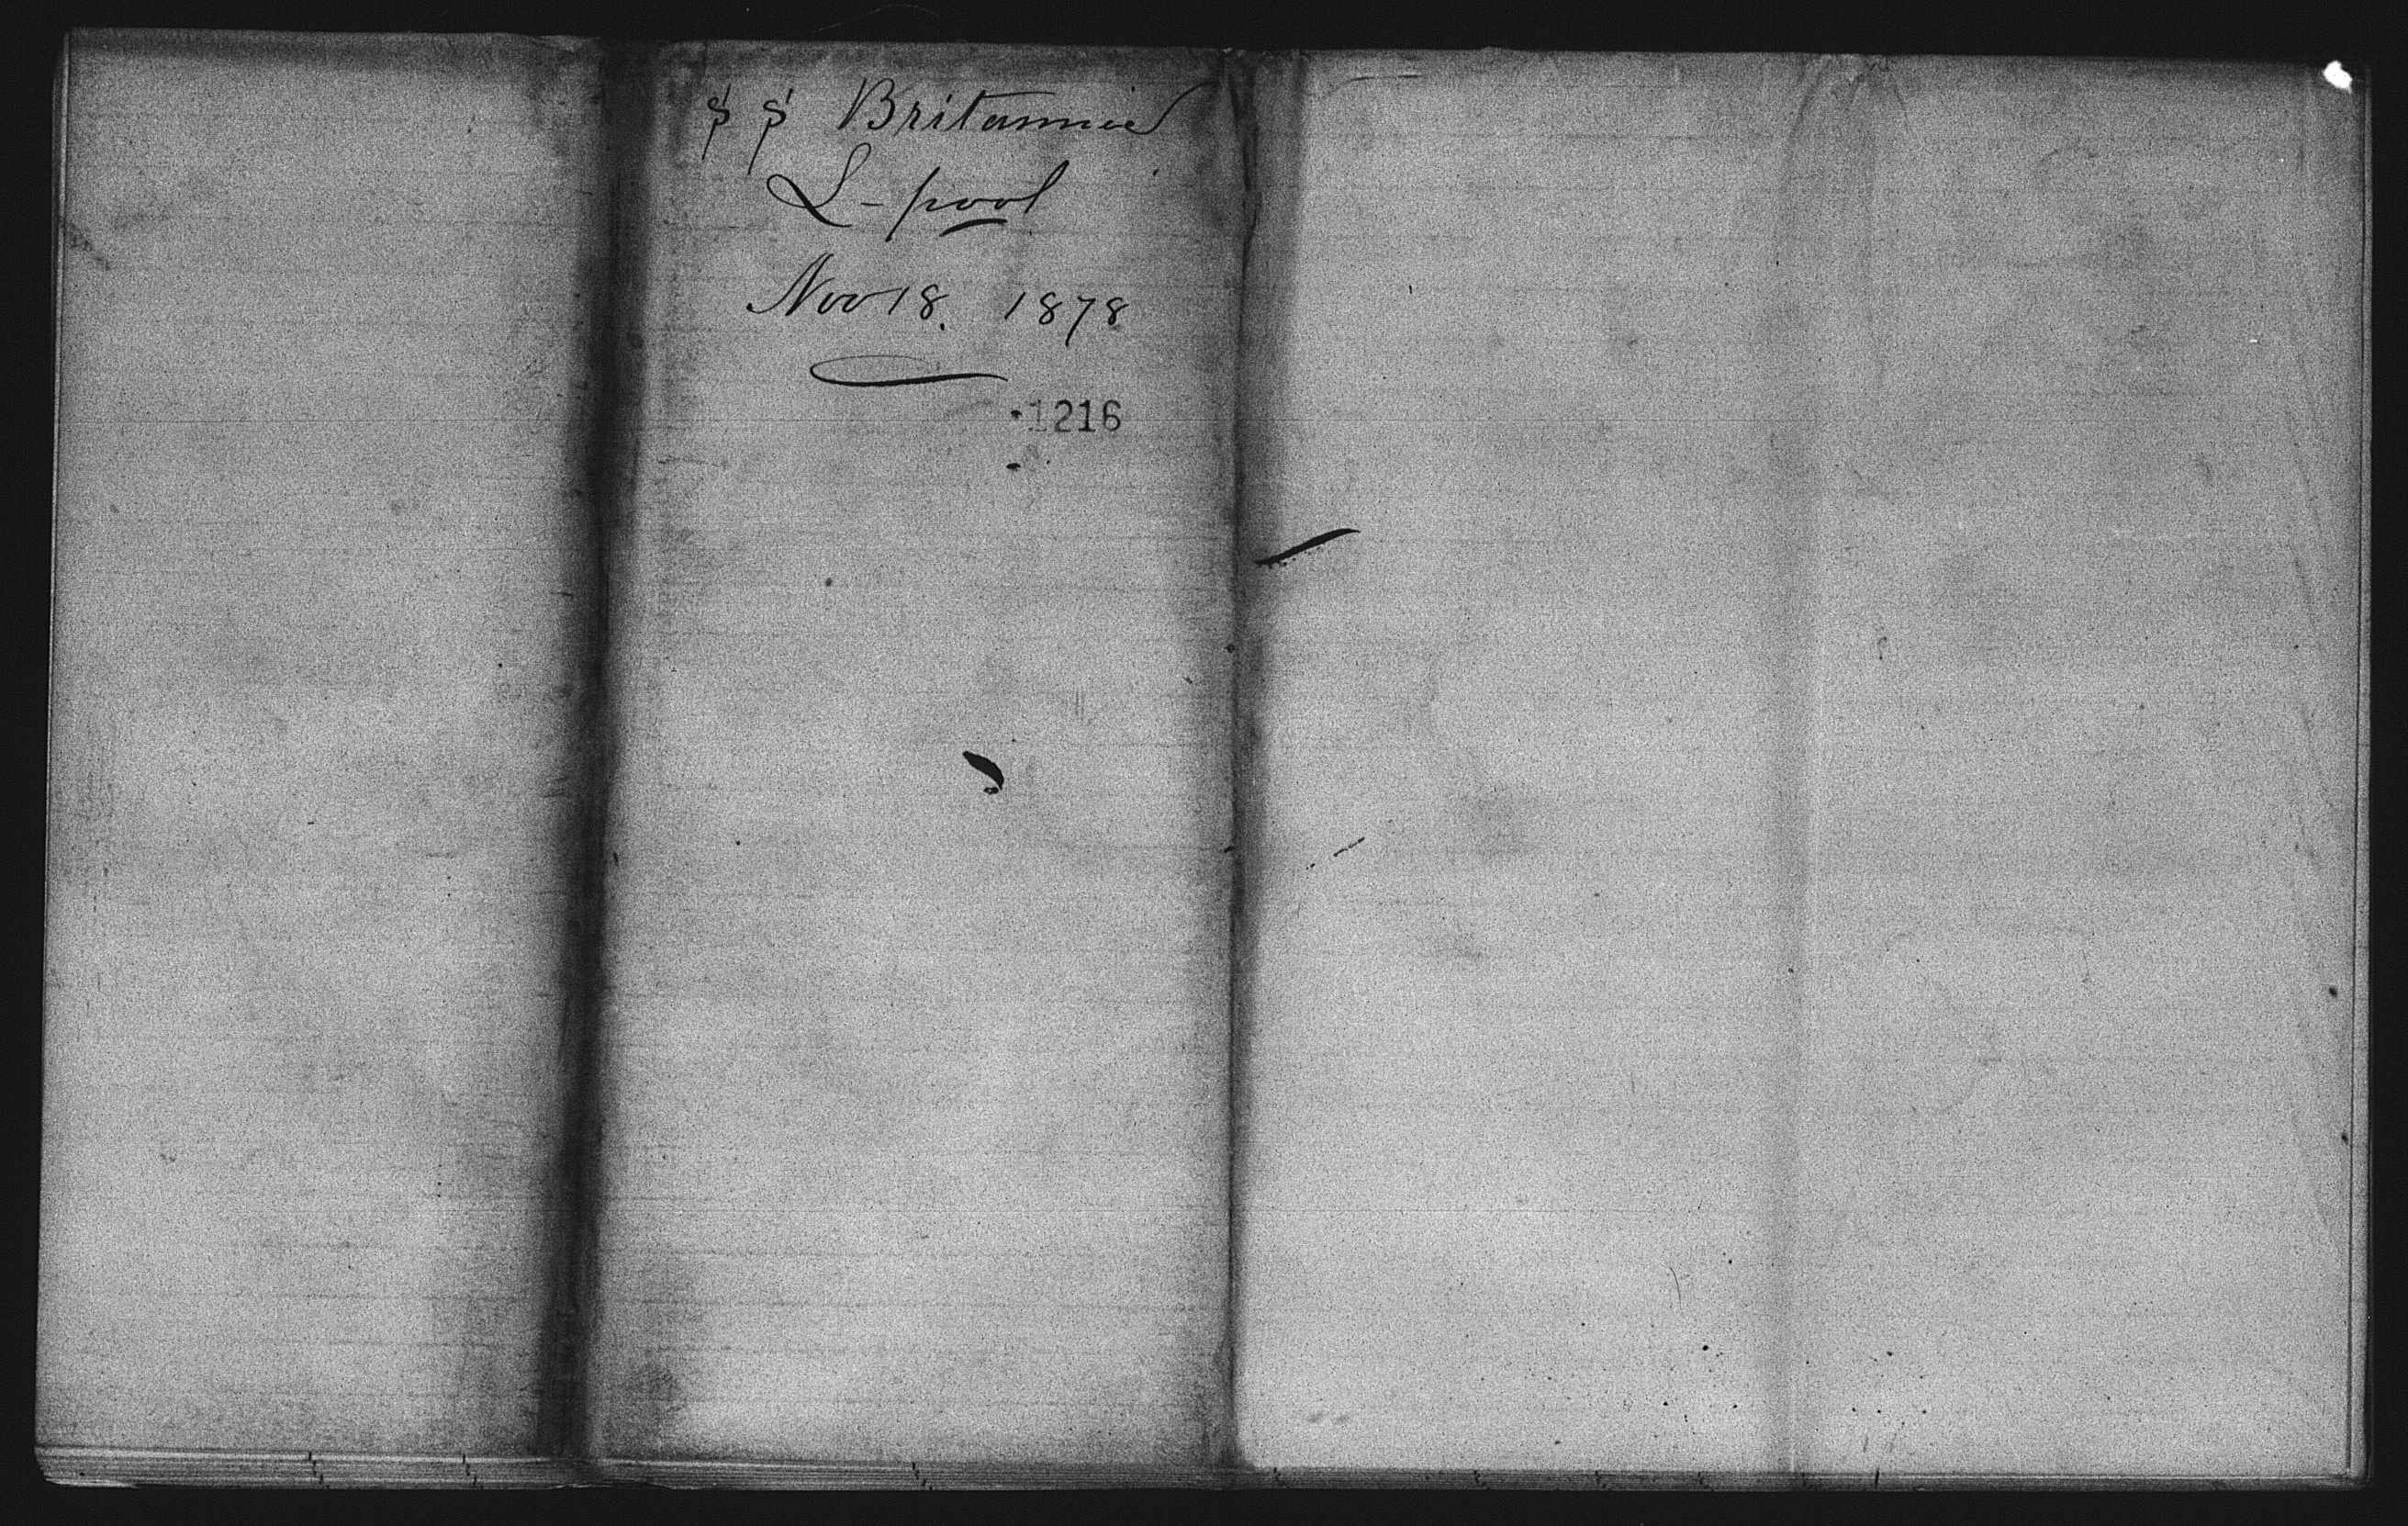 SS Britannic
L-pool
Nov 18. 1878
1216